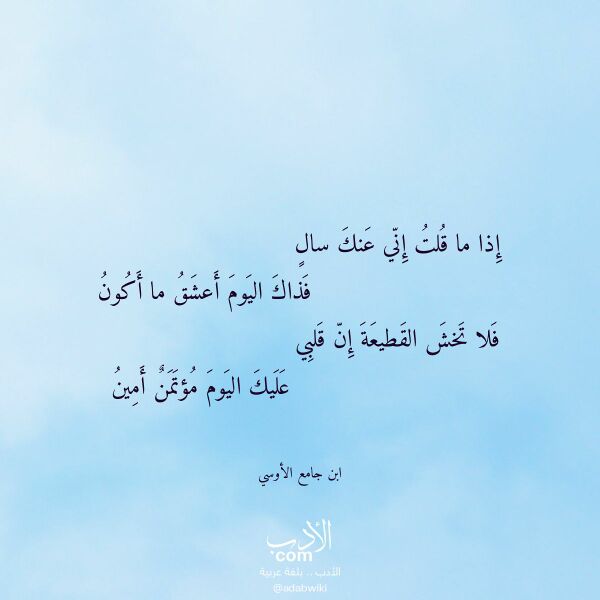 إِذا ما قُلتُ إِنّي عَنكَ سالٍ
فَذاكَ اليَومَ أَعشَقُ ما أَكُونُ
فَلا تَخشَ القَطيعَةَ إِنّ قَلبِي
عَلَيكَ اليَومَ مُؤتَمَنٌ أَمِينُ
ابن جامع الأوسي
الأدب
com
الأدب .. بلغة عربية
@adabwiki